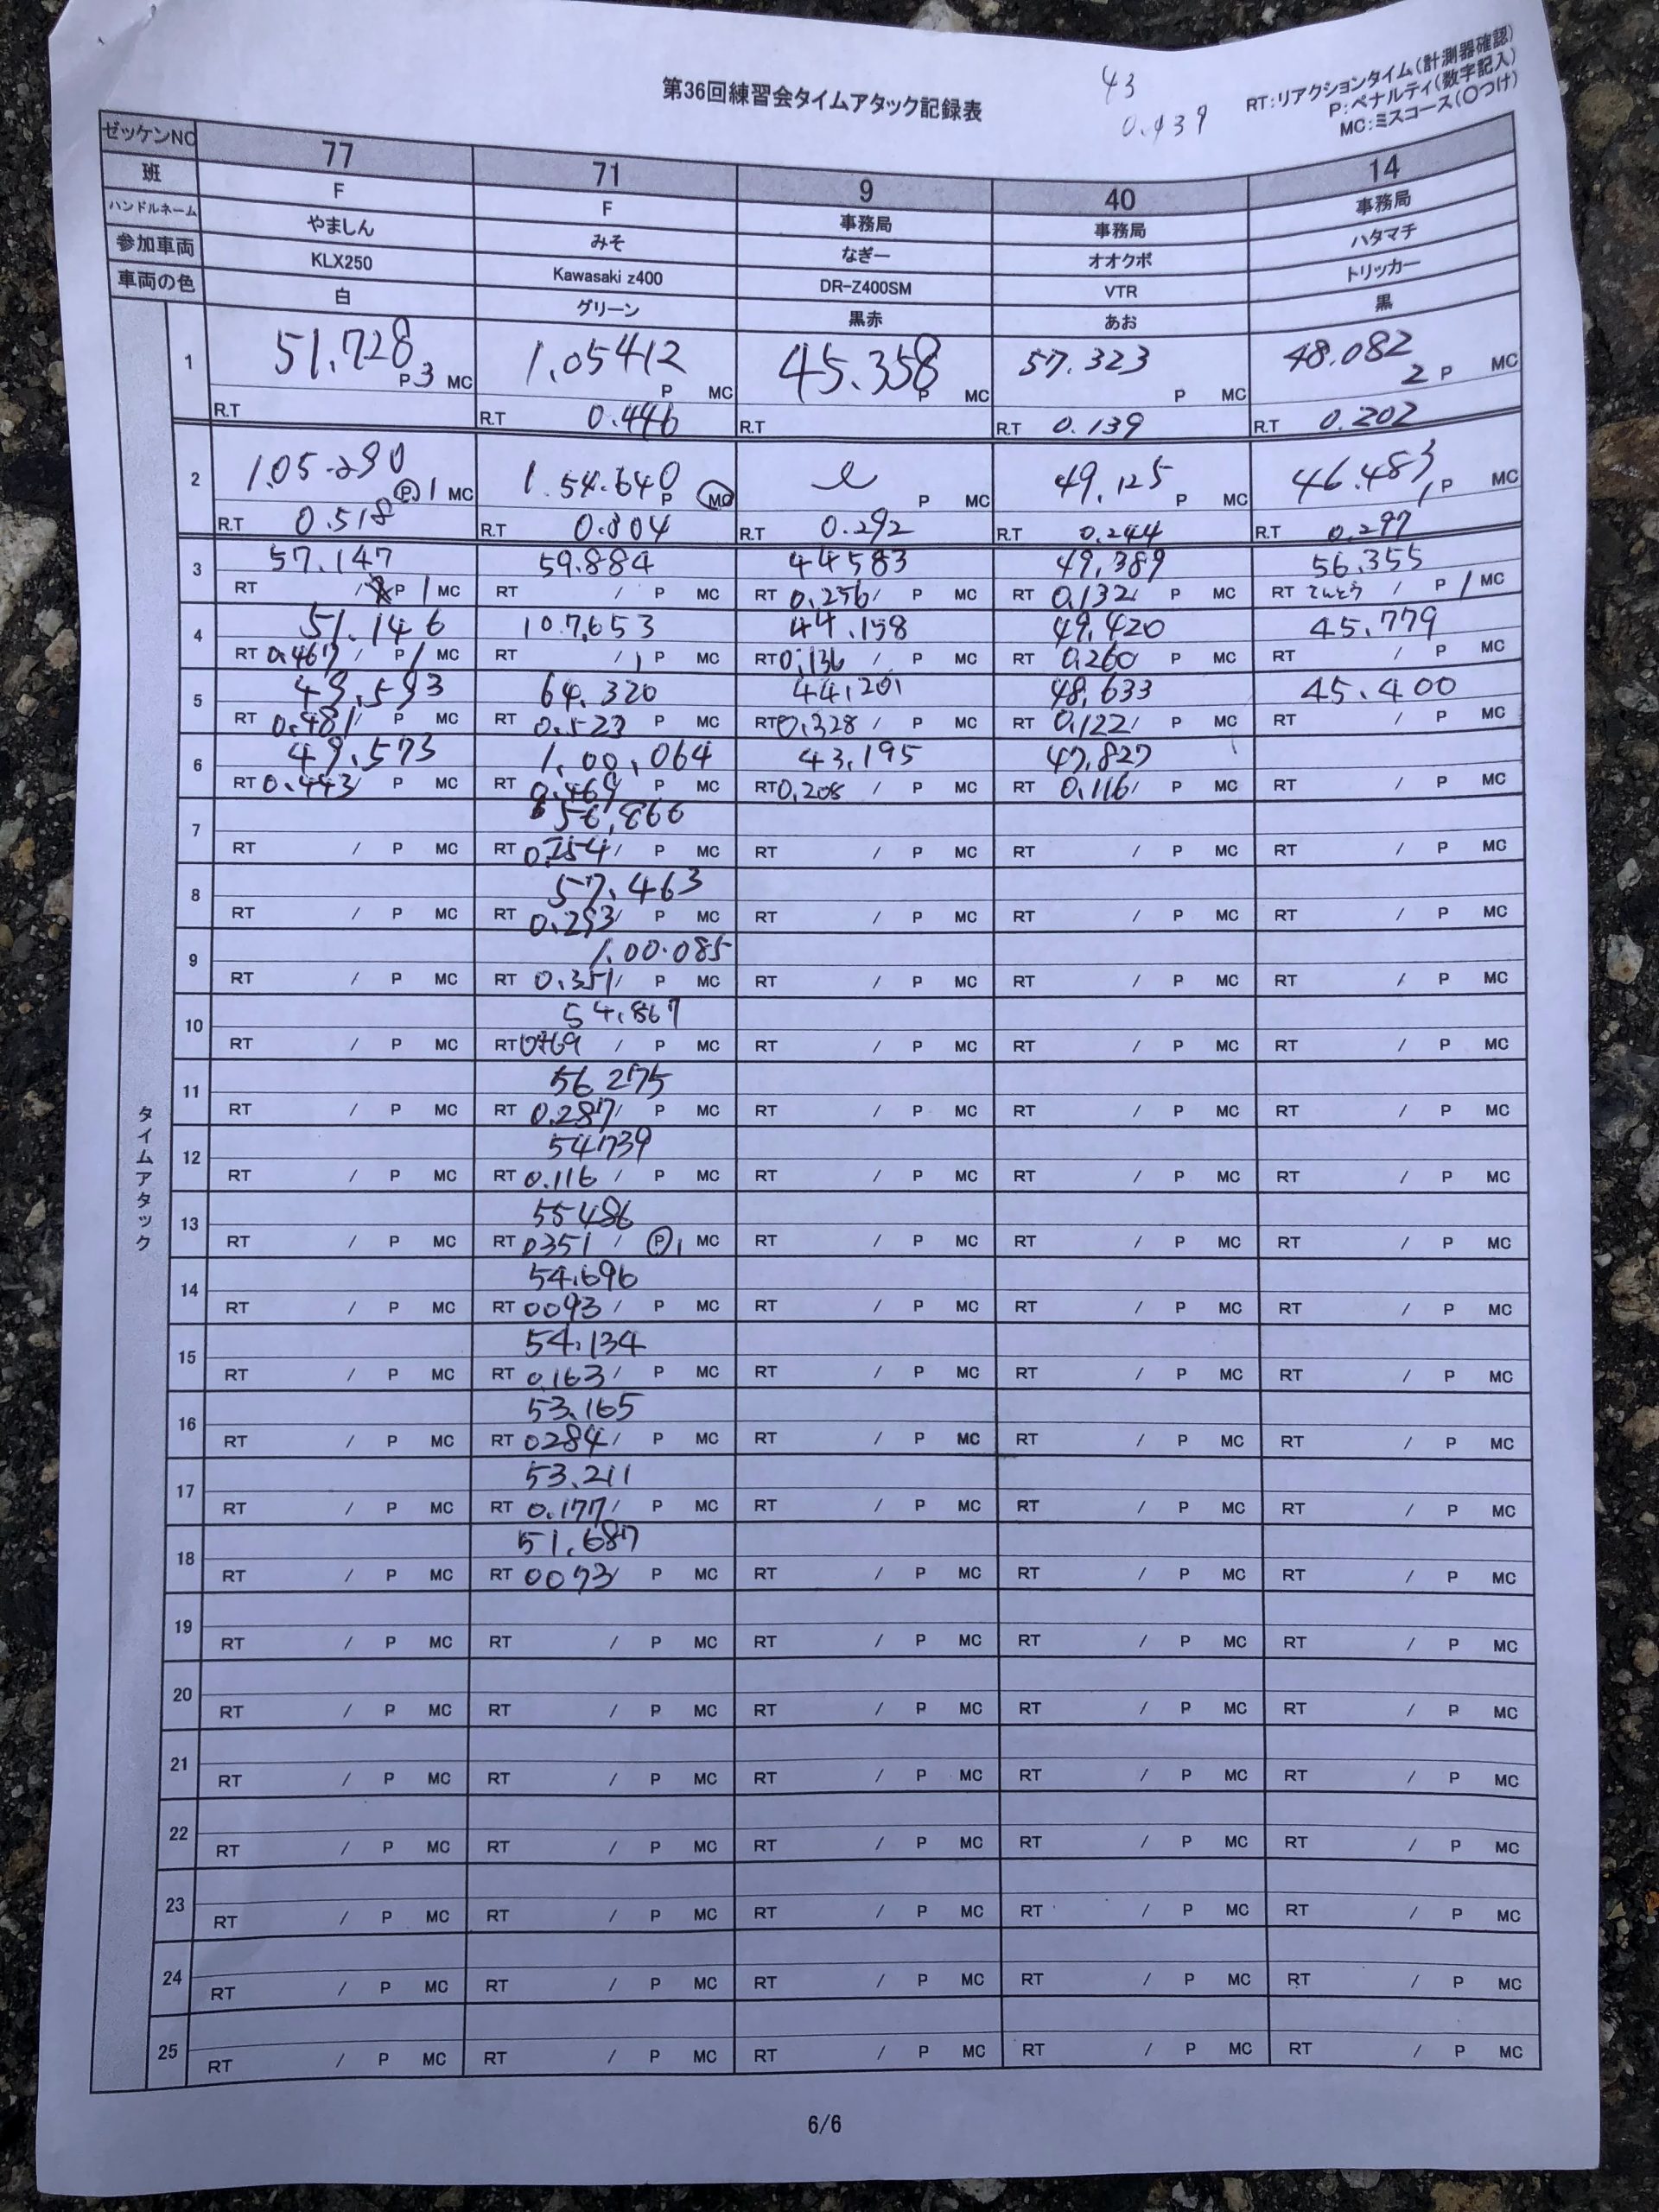 第36回練習会タイムアタック記録表
43
0.439
RT:リアクションタイム(計測器確認)
P:ペナルティ(数字記入)
MC:ミスコース(〇つけ)
ゼッケンNO 77 71 9 40 14
班 F F 事務局 事務局 事務局
ハンドルネーム やましん みそ なぎー オオクボ ハタマチ
参加車両 KLX250 Kawasaki z400 DR-Z400SM VTR トリッカー
車両の色 白 グリーン 黒赤 あお 黒
タイムアタック
1 51.728 1.05412 45.358 57.323 48.082
P3 MC P MC P MC P MC 2 P MC
R.T R.T 0.446 R.T R.T 0.139 R.T 0.202
2 1.05.290 1.54.640 49.125 46.483
P 1 MC P MC P MC P MC 1 P MC
R.T 0.518 R.T 0.804 R.T 0.292 R.T 0.244 R.T 0.297
3 57.147 59.884 44583 49.389 56.355
RT / P 1 MC RT / P MC RT 0.256 / P MC RT 0.132 / P MC RT てんとう / P 1 MC
4 51.146 107.653 44.158 49.420 45.779
RT 0.467 / P 1 MC RT / 1 P MC RT 0.136 / P MC RT 0.260 P MC RT / P MC
5 49.593 64.320 44.201 48.633 45.400
RT 0.481 / P MC RT 0.523 P MC RT 0.328 / P MC RT 0.122 / P MC RT / P MC
6 49.573 1.00.064 43.195 47.827
RT 0.443 / P MC RT 0.469 P MC RT 0.208 / P MC RT 0.116 / P MC RT / P MC
7 56.866
RT / P MC RT 0.254 / P MC RT / P MC RT / P MC RT / P MC
8 57.463
RT / P MC RT 0.293 / P MC RT / P MC RT / P MC RT / P MC
9 1.00.085
RT / P MC RT 0.351 / P MC RT / P MC RT / P MC RT / P MC
10 54.867
RT / P MC RT 0769 / P MC RT / P MC RT / P MC RT / P MC
11 56.275
RT / P MC RT 0.287 / P MC RT / P MC RT / P MC RT / P MC
12 54.739
RT / P MC RT 0.116 / P MC RT / P MC RT / P MC RT / P MC
13 55486
RT / P MC RT 0351 / P 1 MC RT / P MC RT / P MC RT / P MC
14 54.696
RT / P MC RT 0093 / P MC RT / P MC RT / P MC RT / P MC
15 54.134
RT / P MC RT 0.163 / P MC RT / P MC RT / P MC RT / P MC
16 53.165
RT / P MC RT 0284 / P MC RT / P MC RT / P MC RT / P MC
17 53.211
RT / P MC RT 0.177 / P MC RT / P MC RT / P MC RT / P MC
18 51.687
RT / P MC RT 0073 / P MC RT / P MC RT / P MC RT / P MC
19
RT / P MC RT / P MC RT / P MC RT / P MC RT / P MC
20
RT / P MC RT / P MC RT / P MC RT / P MC RT / P MC
21
RT / P MC RT / P MC RT / P MC RT / P MC RT / P MC
22
RT / P MC RT / P MC RT / P MC RT / P MC RT / P MC
23
RT / P MC RT / P MC RT / P MC RT / P MC RT / P MC
24
RT / P MC RT / P MC RT / P MC RT / P MC RT / P MC
25
RT / P MC RT / P MC RT / P MC RT / P MC RT / P MC
6/6